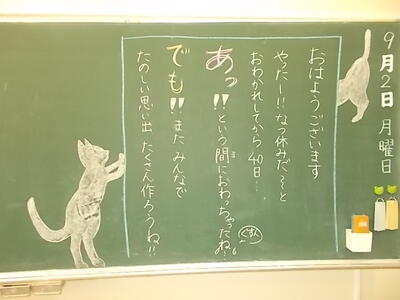 9月2日 月曜日
おはようございます
やったー!!なつ休みだ〜と
おわかれしてから 40日…
あっ!!という間におわっちゃったね。
ま
ぐすん
でも!!また みんなで
たのしい思い出 たくさん作ろうね!!